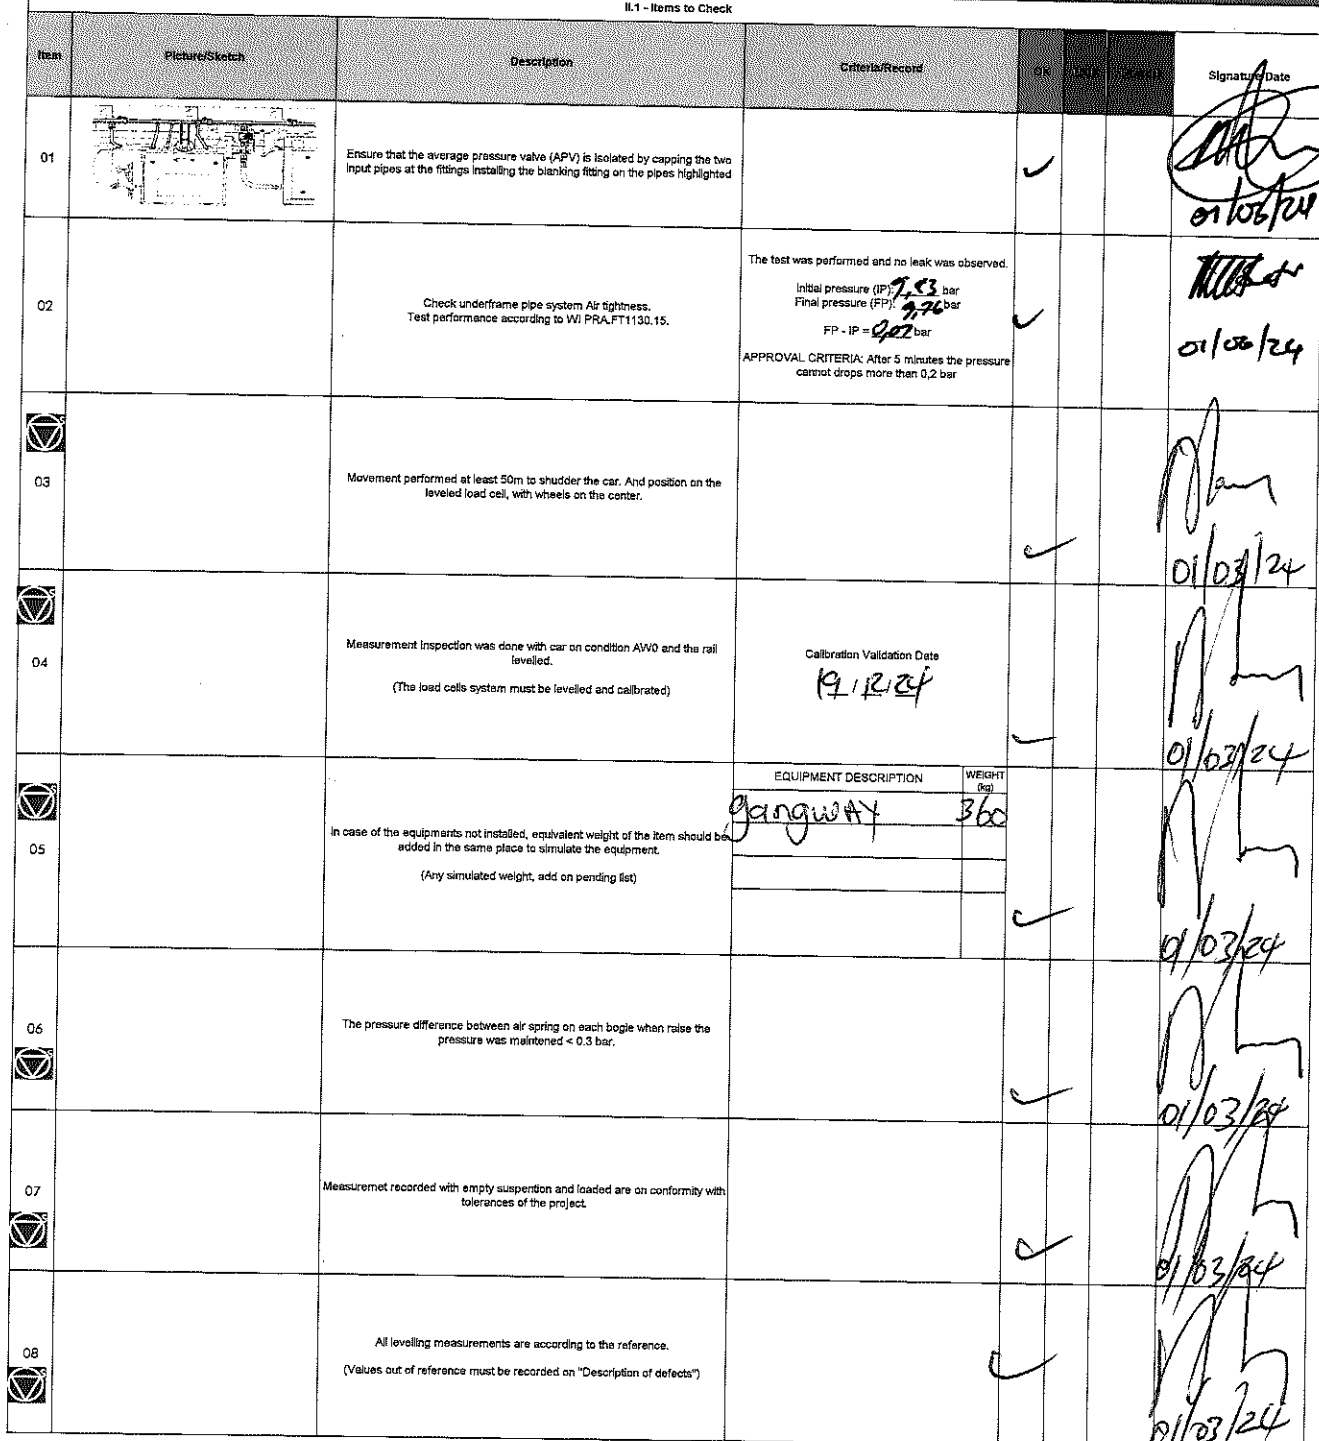 II.1 - Items to Check
Item
Picture/Sketch
Description
Criteria/Record
OK
Signature/Date
01
Ensure that the average pressure valve (APV) is isolated by capping the two
input pipes at the fittings installing the blanking fitting on the pipes highlighted
✓
01/03/24
02
Check underframe pipe system Air tightness.
Test performance according to WI PRA.FT1130.15.
The test was performed and no leak was observed.
Initial pressure (IP): 9,83 bar
Final pressure (FP): 9,76 bar
FP - IP = 0,07 bar
APPROVAL CRITERIA: After 5 minutes the pressure
cannot drops more than 0,2 bar
✓
01/03/24
03
Movement performed at least 50m to shudder the car. And position on the
leveled load cell, with wheels on the center.
✓
01/03/24
04
Measurement inspection was done with car on condition AW0 and the rail
levelled.
(The load cells system must be levelled and calibrated)
Calibration Validation Date
19/12/24
✓
01/03/24
05
In case of the equipments not installed, equivalent weight of the item should be
added in the same place to simulate the equipment.
(Any simulated weight, add on pending list)
EQUIPMENT DESCRIPTION
WEIGHT
(kg)
gangwAY 360
✓
01/03/24
06
The pressure difference between air spring on each bogie when raise the
pressure was maintened < 0.3 bar.
✓
01/03/24
07
Measuremet recorded with empty suspention and loaded are on conformity with
tolerances of the project.
✓
01/03/24
08
All levelling measurements are according to the reference.
(Values out of reference must be recorded on "Description of defects")
✓
01/03/24